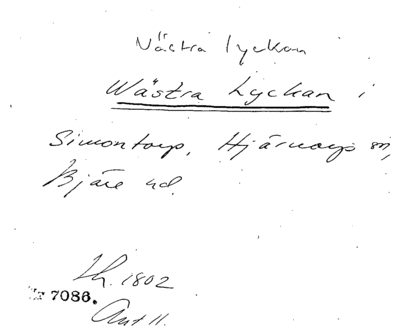 Västra lyckan
Wästra Lyckan i
Simontorp, Hjärnarps sn,
Bjäre hd.
Lh. 1802
Nr 7086.
Ant 11.